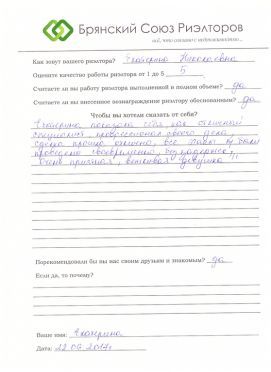 Брянский Союз Риэлторов
всё, что связано с недвижимостью...
Как зовут вашего риэлтора? Екатерина Николаевна
Оцените качество работы риэлтора от 1 до 5 5
Считаете ли вы работу риэлтора выполненной в полном объеме? да
Считаете ли вы внесенное вознаграждение риэлтору обоснованным? да
Чтобы вы хотели сказать от себя?
Екатерина показала себя как отличный
специалист, профессионал своего дела,
сделка прошла отлично, все этапы были
проведены своевременно, без задержек,
очень приятная, вежливая девушка!!!
Порекомендовали бы вы нас своим друзьям и знакомым? да
Если да, то почему?
Ваше имя: Екатерина
Дата: 22.06.2017г